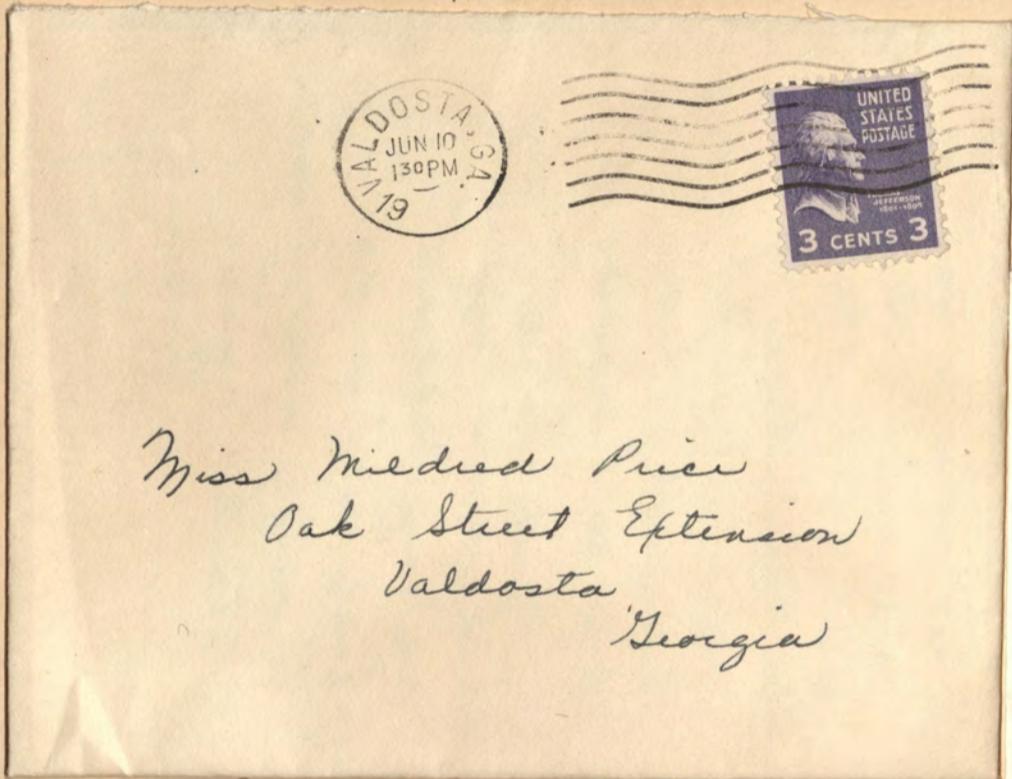 VALDOSTA, GA.
JUN 10
1 30 PM
19
UNITED
STATES
POSTAGE
JEFFERSON
1801-1809
3 CENTS 3
Miss Mildred Price
Oak Street Extension
Valdosta
Georgia